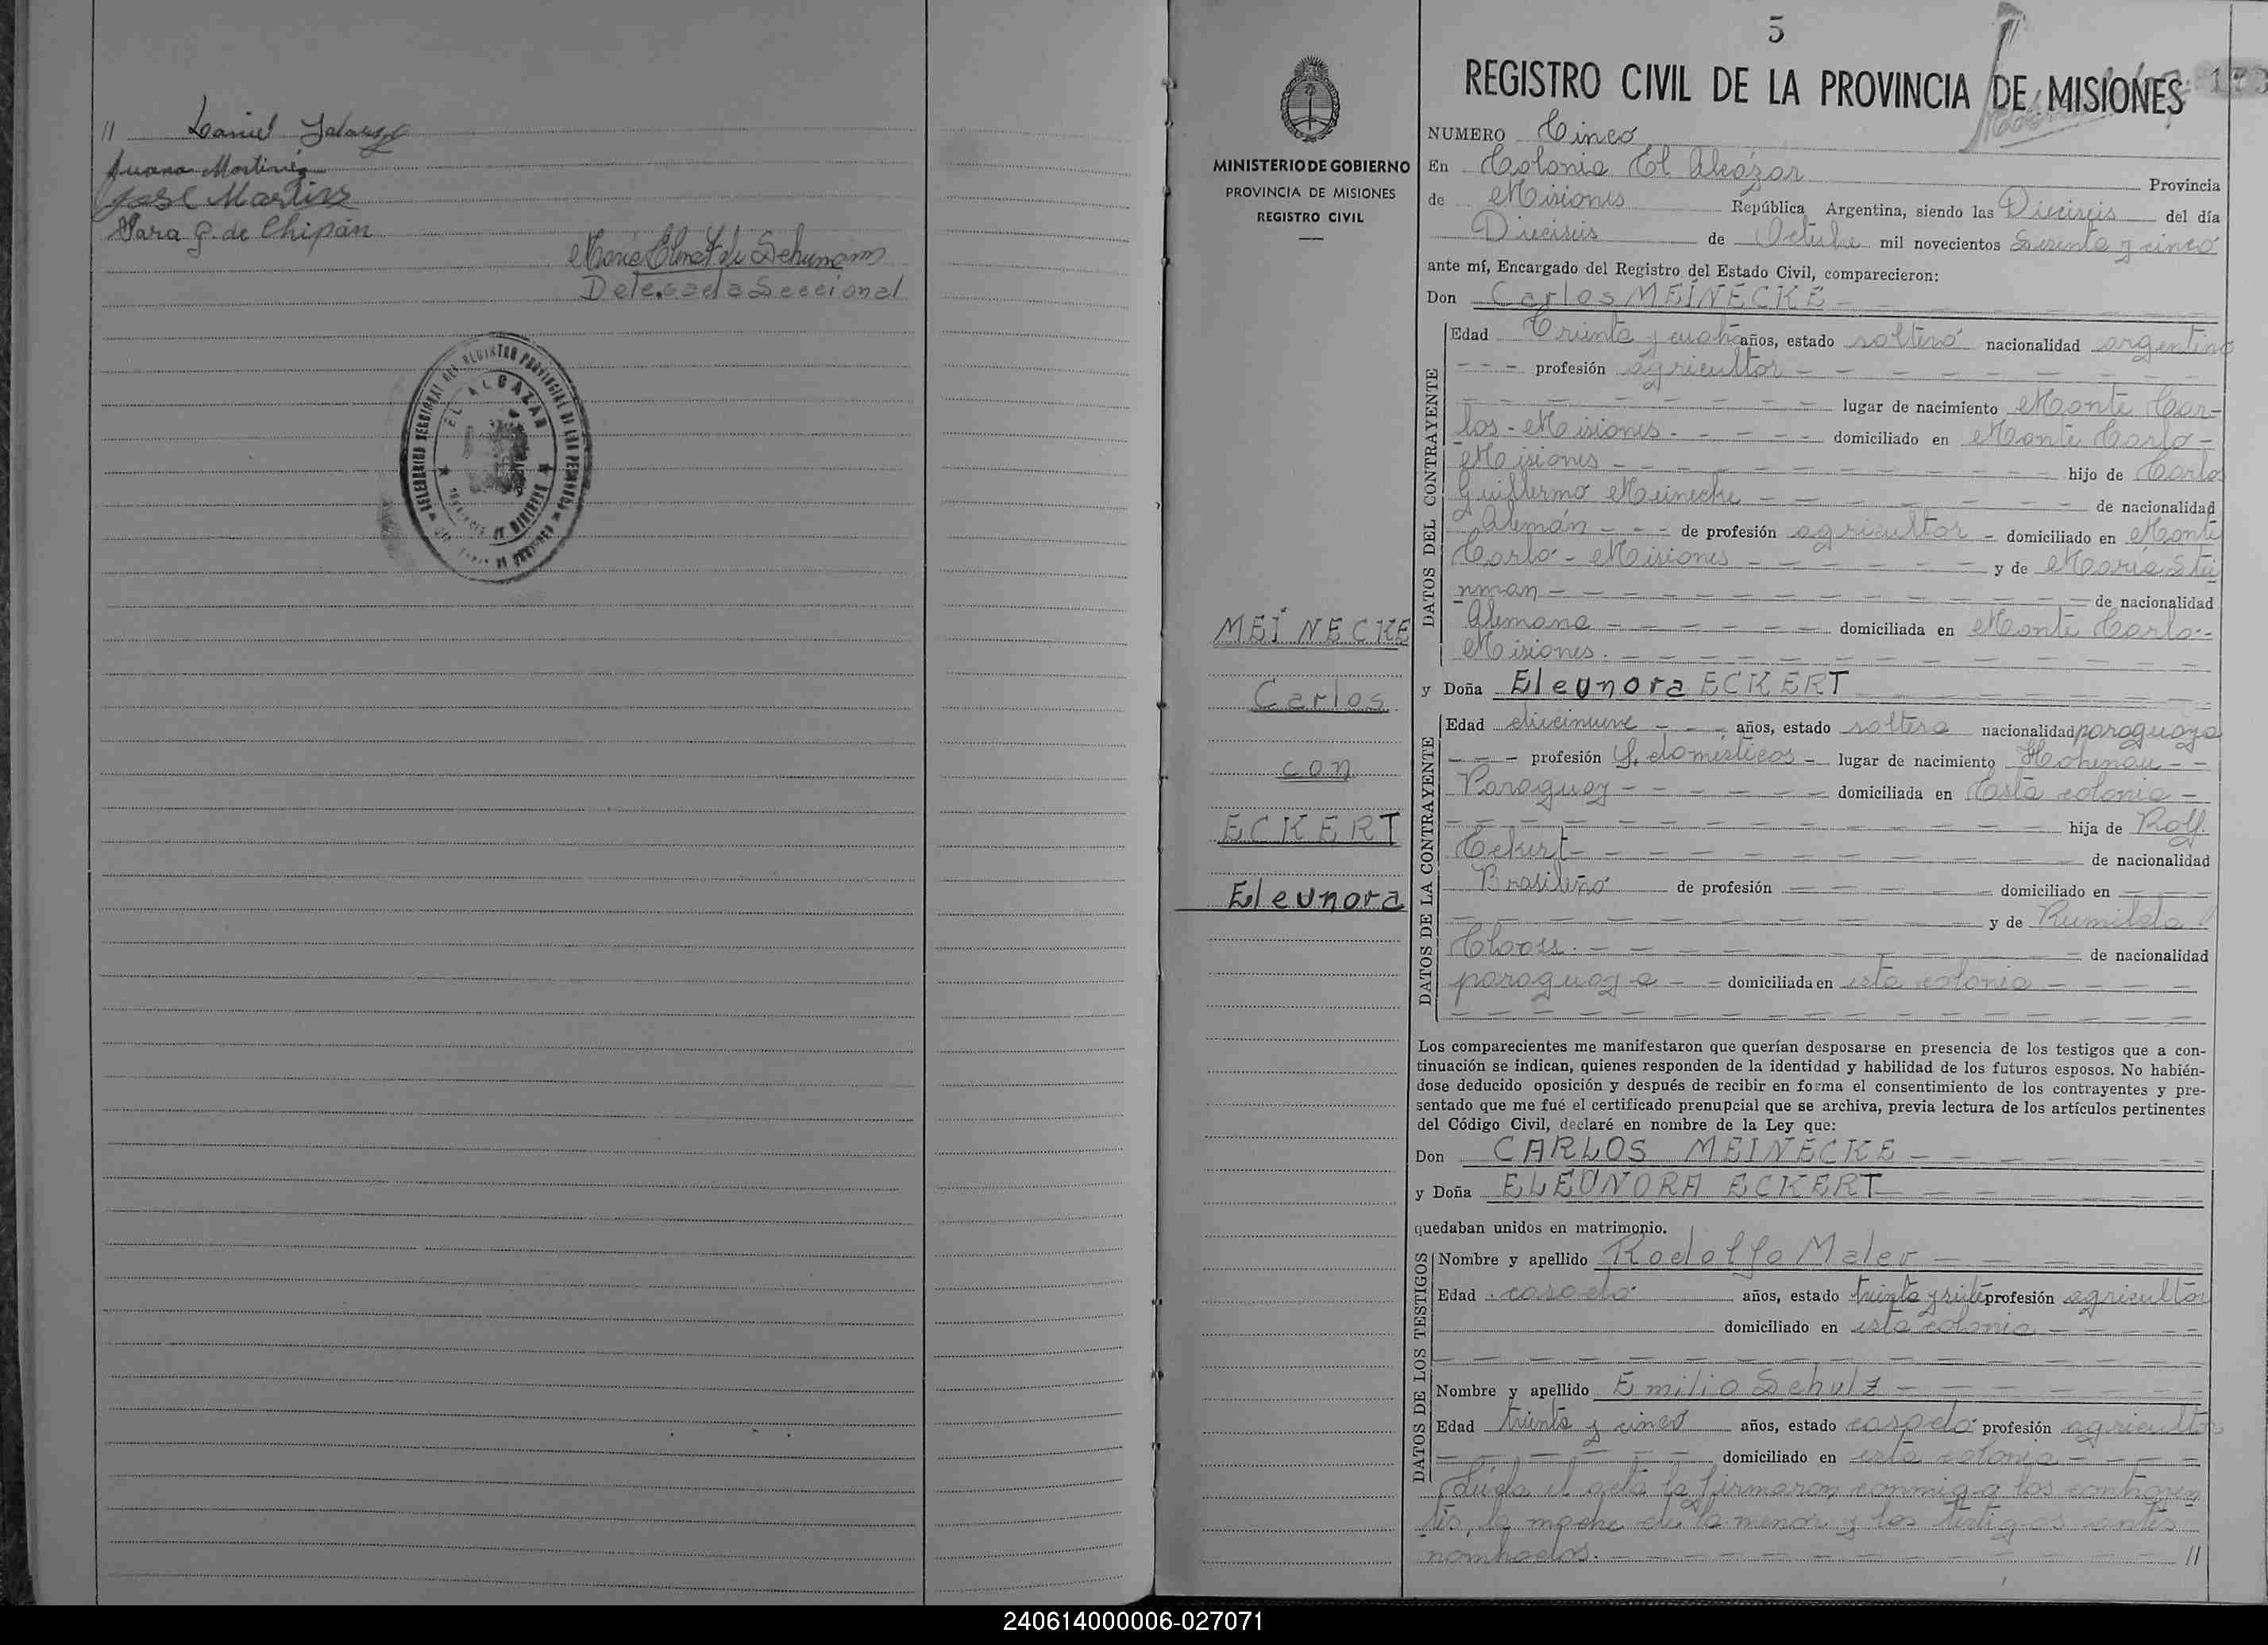 // Daniel
Juana Martinez
José Martins
Sara G. de Chipán
Maria Elena F. de Schumann
Delegada Seccional
EL ALCAZAR
5
REGISTRO CIVIL DE LA PROVINCIA DE MISIONES
MINISTERIO DE GOBIERNO
PROVINCIA DE MISIONES
REGISTRO CIVIL
MEINECKE
Carlos
con
ECKERT
Eleunora
NUMERO Cinco
En Colonia El Alcázar Provincia
de Misiones República Argentina, siendo las Dieciseis del día
Dieciseis de Octubre mil novecientos Sesenta y cinco
ante mí, Encargado del Registro del Estado Civil, comparecieron:
Don Carlos MEINECKE
DATOS DEL CONTRAYENTE
Edad Treinta y cuatro años, estado soltero nacionalidad argentino
profesión agricultor
lugar de nacimiento Monte Car-
los - Misiones domiciliado en Monte Carlo -
Misiones hijo de Carlos
Guillermo Meinecke de nacionalidad
Alemán de profesión agricultor domiciliado en Monte
Carlo - Misiones y de María Stei
nman de nacionalidad
Alemana domiciliada en Monte Carlo -
Misiones.
y Doña Eleunora ECKERT
DATOS DE LA CONTRAYENTE
Edad diecinueve años, estado soltera nacionalidad paraguaya
profesión Q. domésticos lugar de nacimiento Hohenau
Paraguay domiciliada en Esta colonia
hija de Rolf
Eckert de nacionalidad
Brasileño de profesión domiciliado en
y de Rumilda
de nacionalidad
paraguaya domiciliada en esta colonia
Los comparecientes me manifestaron que querían desposarse en presencia de los testigos que a con-
tinuación se indican, quienes responden de la identidad y habilidad de los futuros esposos. No habién-
dose deducido oposición y después de recibir en forma el consentimiento de los contrayentes y pre-
sentado que me fué el certificado prenupcial que se archiva, previa lectura de los artículos pertinentes
del Código Civil, declaré en nombre de la Ley que:
Don CARLOS MEINECKE
y Doña ELEUNORA ECKERT
quedaban unidos en matrimonio.
DATOS DE LOS TESTIGOS
Nombre y apellido Rodolfo Maler
Edad casado años, estado treinta y siete profesión agricultor
domiciliado en esta colonia
Nombre y apellido Emilio Schulz
Edad treinta y cinco años, estado casado profesión agricultor
domiciliado en esta colonia
Leída el acta la firmaron conmigo los contrayen
tes, la madre de la menor y los testigos antes
nombrados. //
240614000006-027071